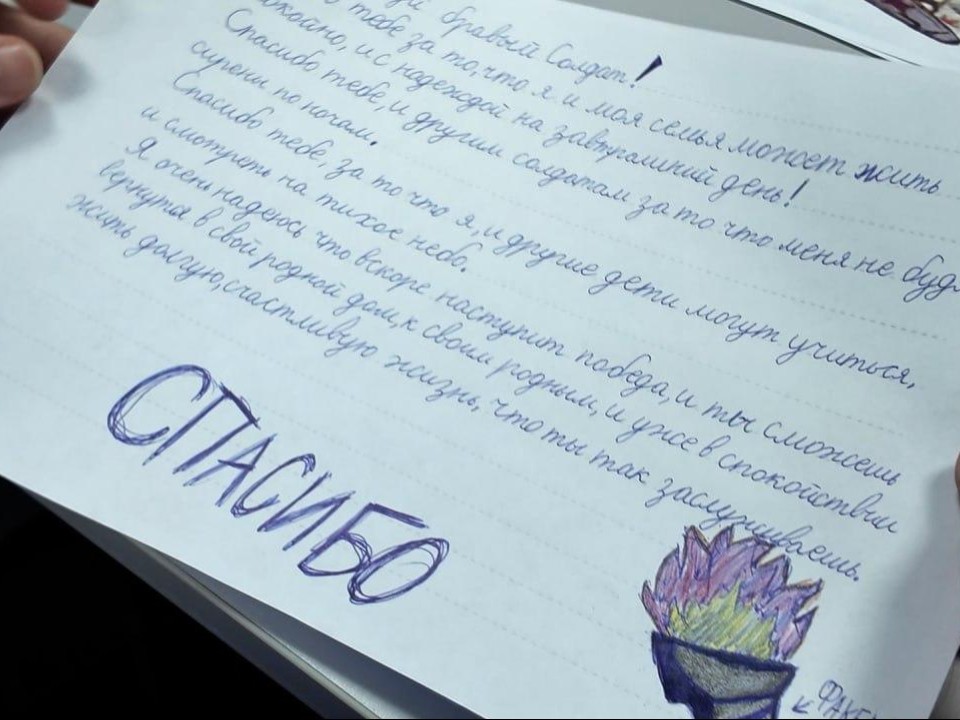 бравый Солдат!
тебе за то, что я и моя семья может жить
спокойно, и с надеждой на завтрашний день!
Спасибо тебе, и другим солдатам за то что меня не
сирены по ночам.
Спасибо тебе, за то что я, и другие дети могут учиться,
и смотреть на тихое небо.
Я очень надеюсь что вскоре наступит победа, и ты сможешь
вернутся в свой родной дом, к своим родным, и уже в спокойствии
жить долгую, счастливую жизнь, что ты так заслуживаешь.
СПАСИБО